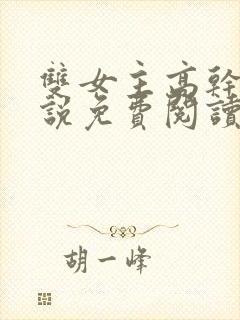 雙女主高幹
說免費閱讀
胡一峰